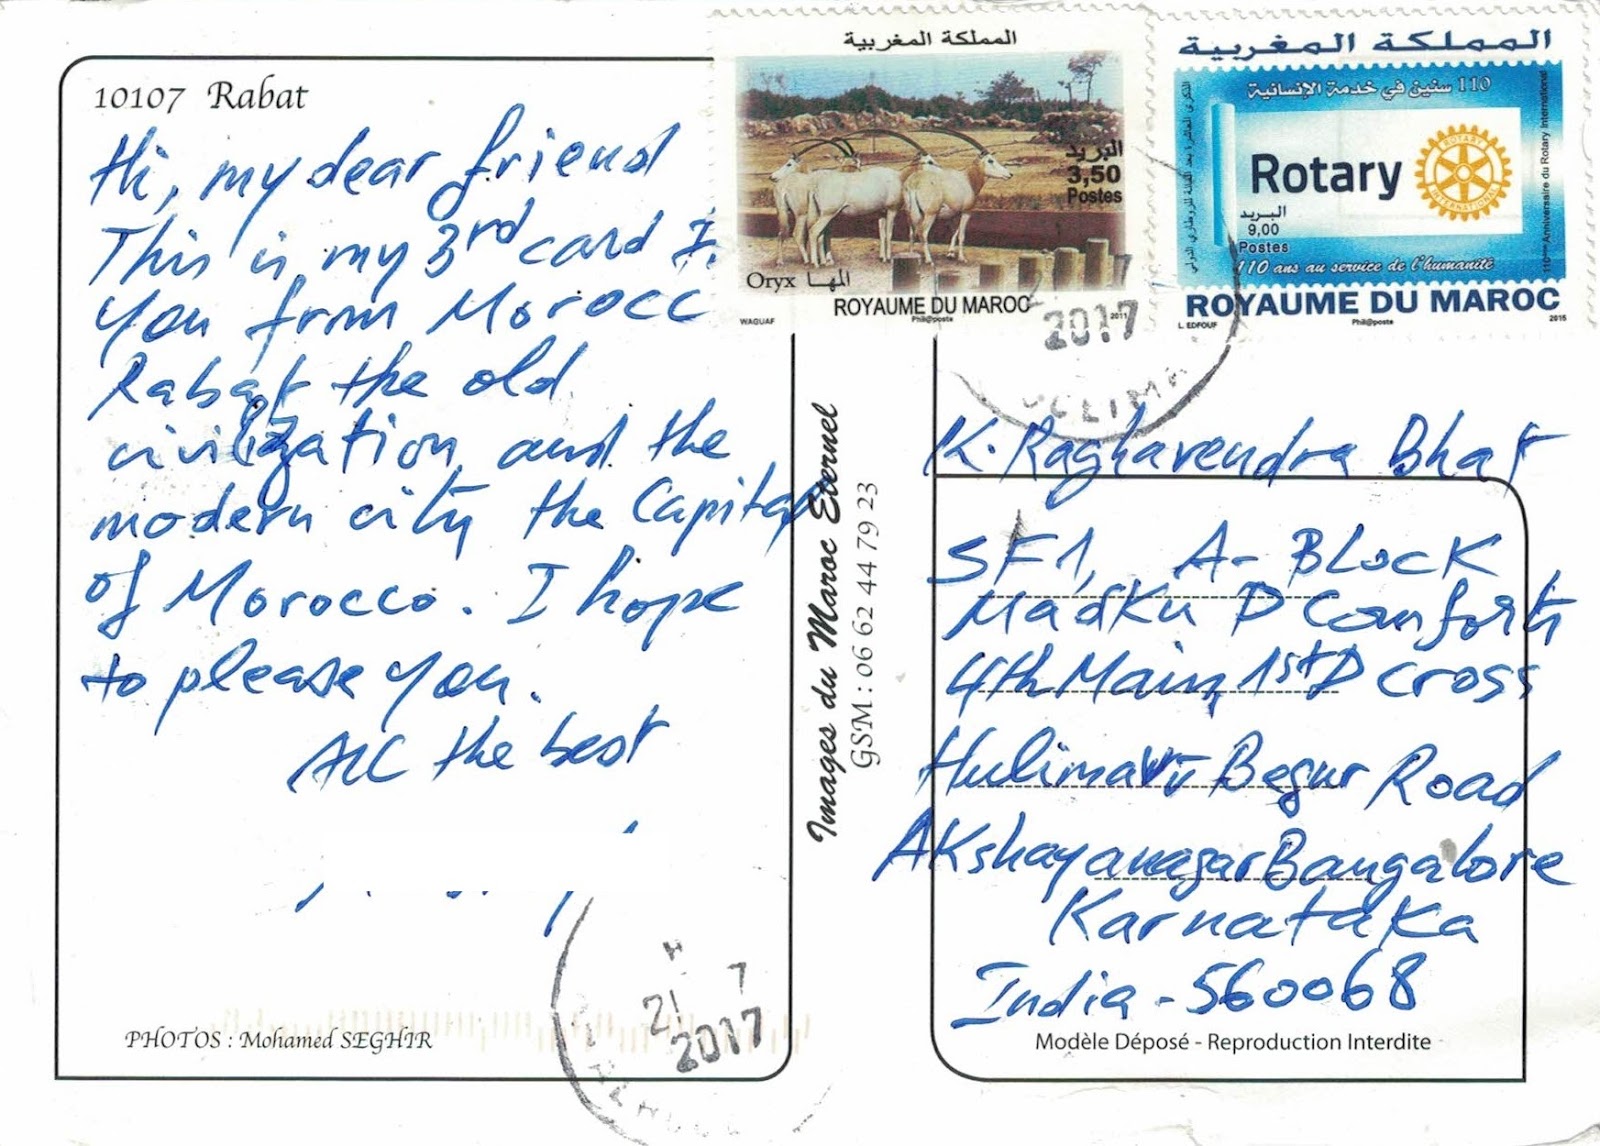 10107 Rabat
Hi, my dear friend
This is my 3rd card I
you from Morocc
Rabat the old
civilization and the
modern city the Capital
of Morocco. I hope
to please you.
All the best
PHOTOS : Mohamed SEGHIR
21 7
2017
Images du Maroc Eternel
GSM : 06 62 44 79 23
المملكة المغربية
البريد
3,50
Postes
Oryx المها
ROYAUME DU MAROC
WAQUAF Phil@poste 2011
المملكة المغربية
110 سنين في خدمة الإنسانية
Rotary
ROTARY
INTERNATIONAL
البريد
9,00
Postes
110 ans au service de l'humanité
110ème Anniversaire du Rotary International
ROYAUME DU MAROC
L. EDFOUF Phil@poste 2015
2017
K. Raghavendra Bhat
SF1, A- BLOCK
Madku D Comforth
4th Main, 1st D cross
Hulimavu Begur Road
Akshayanagar Bangalore
Karnataka
India - 560068
Modèle Déposé - Reproduction Interdite